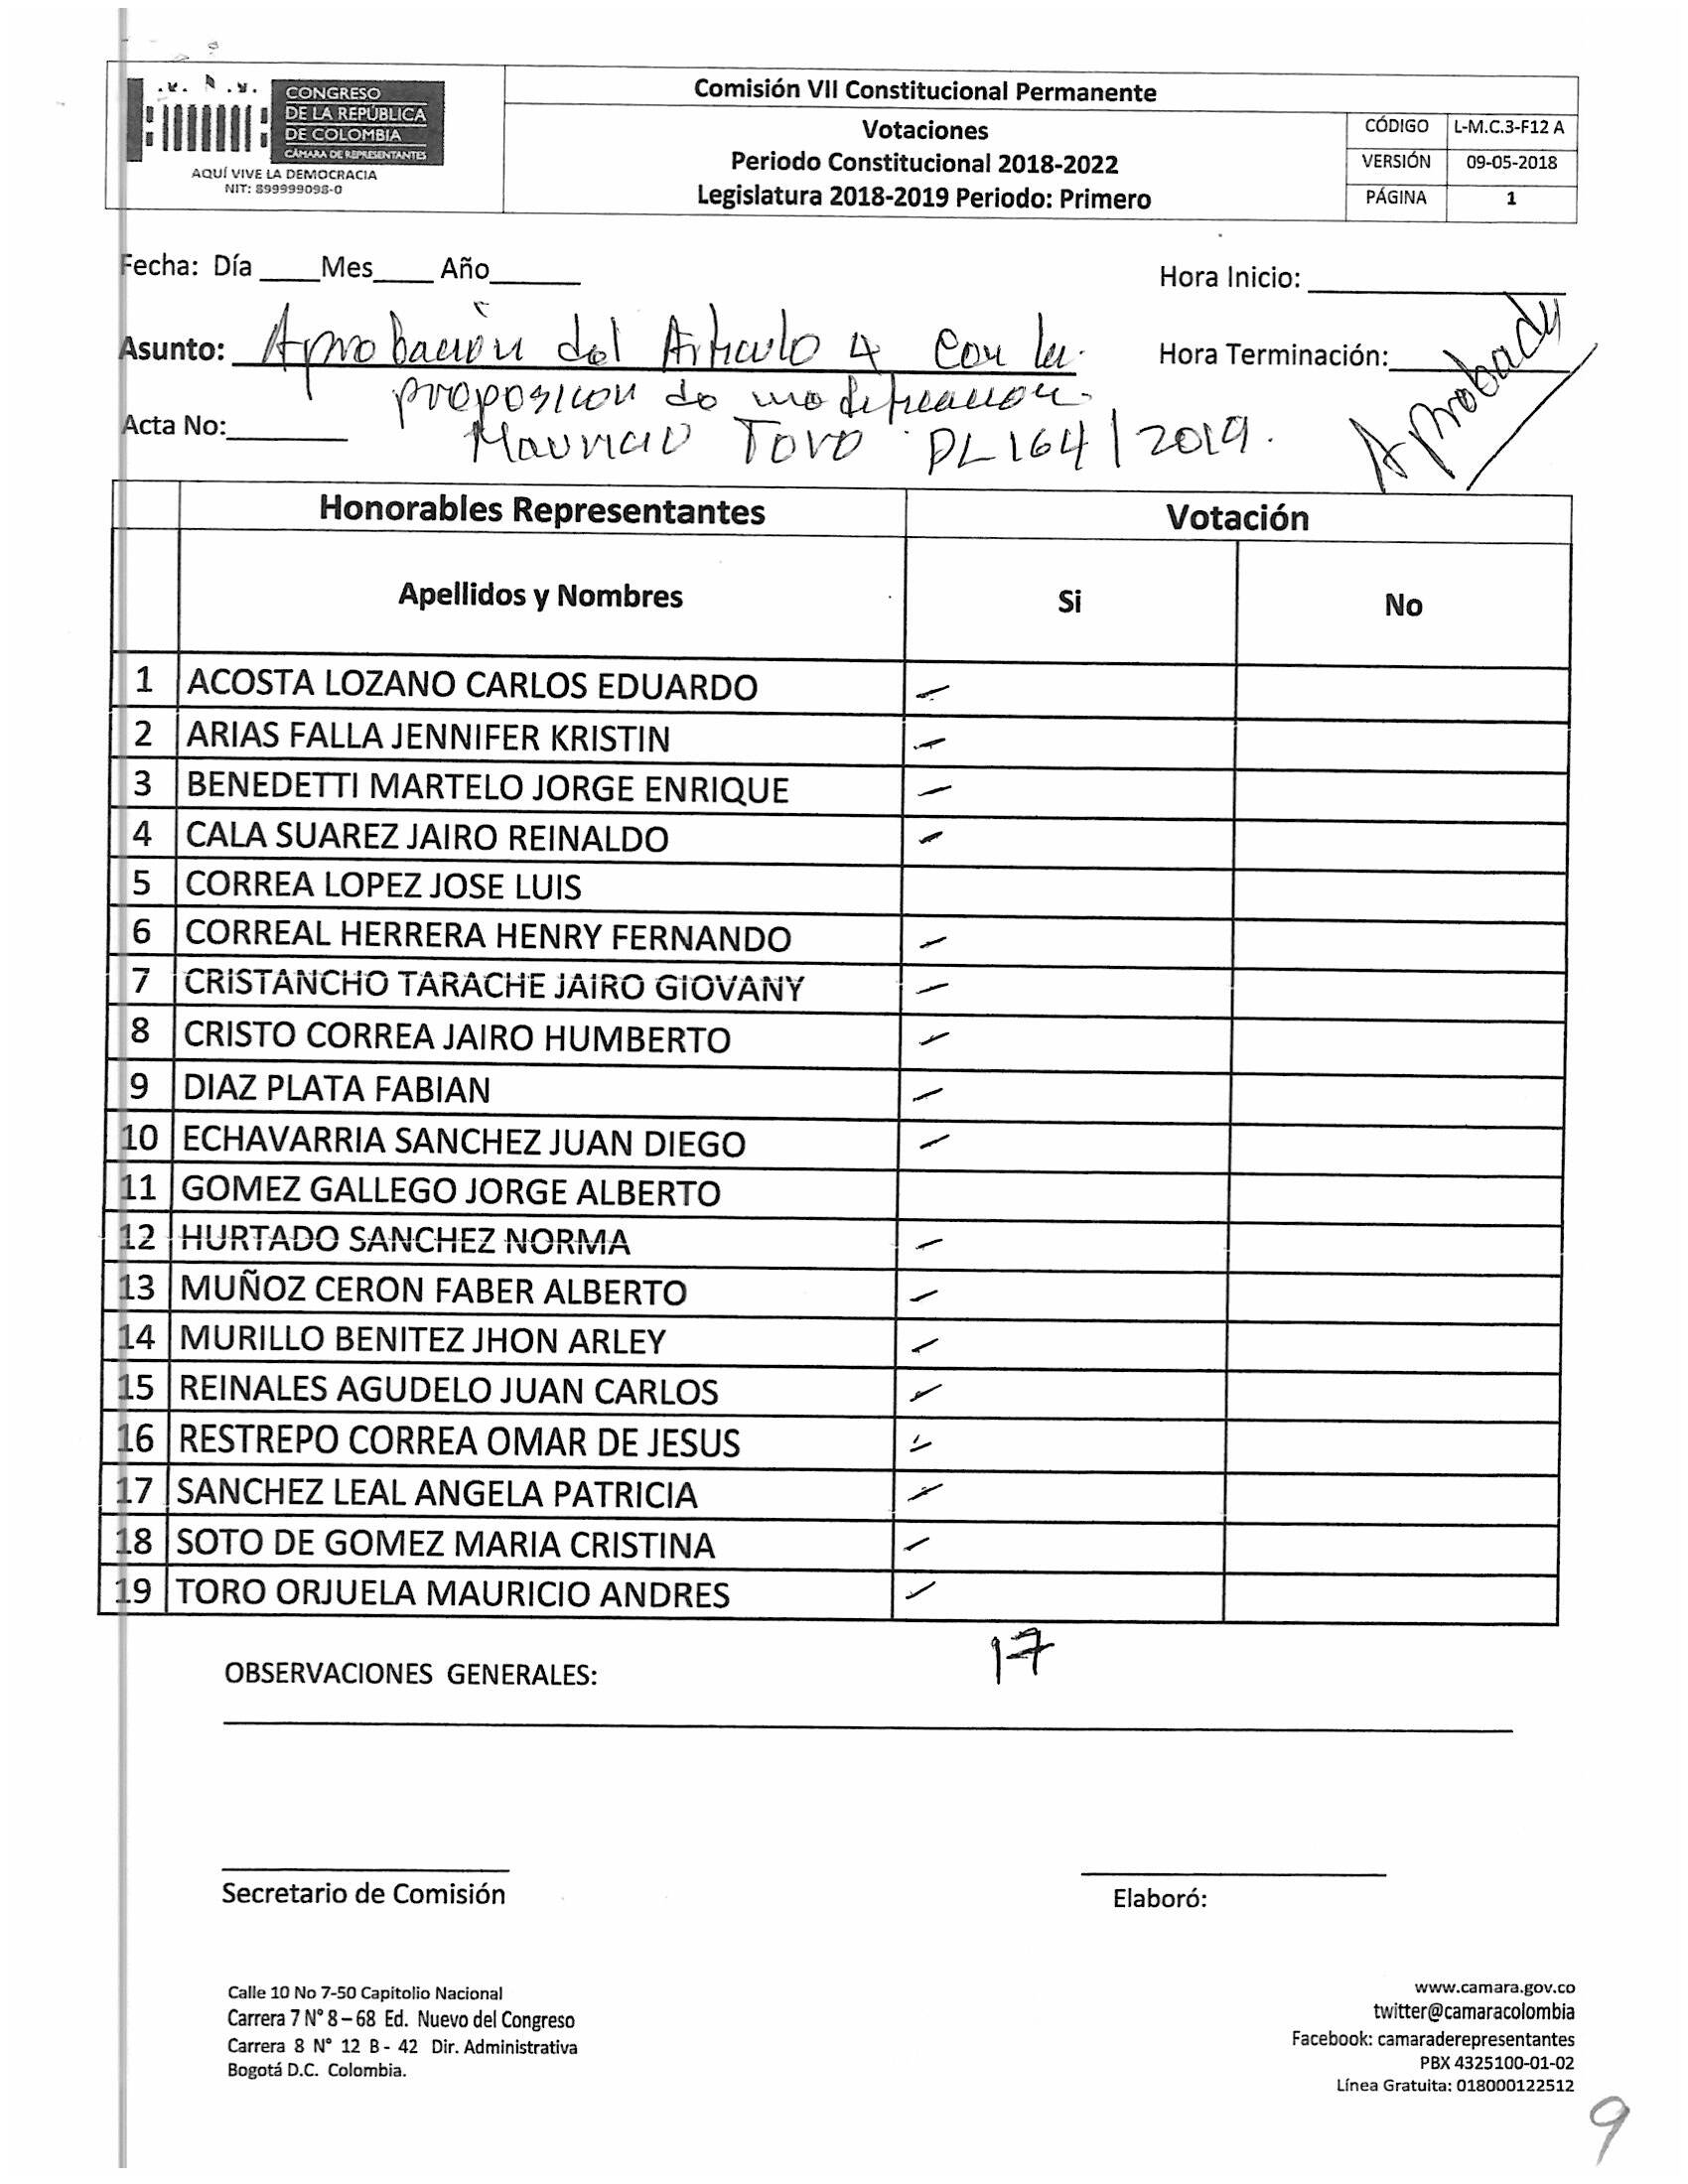 CONGRESO
DE LA REPÚBLICA
DE COLOMBIA
CÁMARA DE REPRESENTANTES
AQUÍ VIVE LA DEMOCRACIA
NIT: 899999098-0
Comisión VII Constitucional Permanente
Votaciones
Periodo Constitucional 2018-2022
Legislatura 2018-2019 Periodo: Primero
CÓDIGO L-M.C.3-F12 A
VERSIÓN 09-05-2018
PÁGINA 1
Fecha: Día ____Mes____ Año______
Hora Inicio: _________________
Asunto: Aprobación del Articulo 4 con la
Hora Terminación:____________
proposicion de modificacion.
Acta No:________
Mauricio Toro PL 164/2019.
Aprobado
Honorables Representantes Votación
Apellidos y Nombres Si No
1 ACOSTA LOZANO CARLOS EDUARDO
2 ARIAS FALLA JENNIFER KRISTIN
3 BENEDETTI MARTELO JORGE ENRIQUE
4 CALA SUAREZ JAIRO REINALDO
5 CORREA LOPEZ JOSE LUIS
6 CORREAL HERRERA HENRY FERNANDO
7 CRISTANCHO TARACHE JAIRO GIOVANY
8 CRISTO CORREA JAIRO HUMBERTO
9 DIAZ PLATA FABIAN
10 ECHAVARRIA SANCHEZ JUAN DIEGO
11 GOMEZ GALLEGO JORGE ALBERTO
12 HURTADO SANCHEZ NORMA
13 MUÑOZ CERON FABER ALBERTO
14 MURILLO BENITEZ JHON ARLEY
15 REINALES AGUDELO JUAN CARLOS
16 RESTREPO CORREA OMAR DE JESUS
17 SANCHEZ LEAL ANGELA PATRICIA
18 SOTO DE GOMEZ MARIA CRISTINA
19 TORO ORJUELA MAURICIO ANDRES
17
OBSERVACIONES GENERALES:
Secretario de Comisión
Elaboró:
Calle 10 No 7-50 Capitolio Nacional
Carrera 7 N° 8 – 68 Ed. Nuevo del Congreso
Carrera 8 N° 12 B - 42 Dir. Administrativa
Bogotá D.C. Colombia.
www.camara.gov.co
twitter@camaracolombia
Facebook: camaraderepresentantes
PBX 4325100-01-02
Línea Gratuita: 018000122512
9